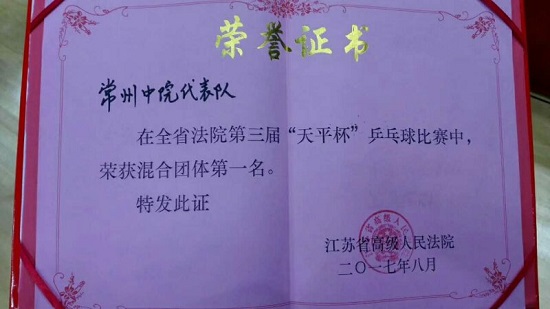 荣誉证书
常州中院代表队
在全省法院第三届“天平杯”乒乓球比赛中，
荣获混合团体第一名。
特发此证
江苏省高级人民法院
二〇一七年八月